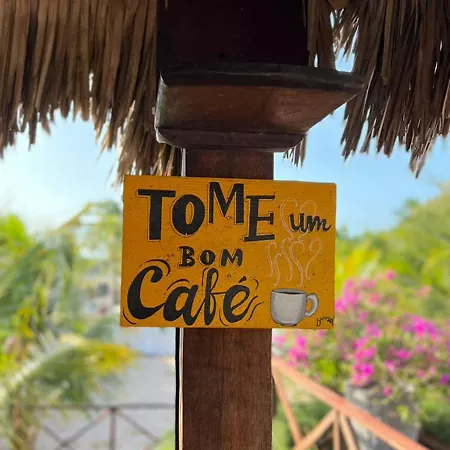 TOME um
BOM
Café